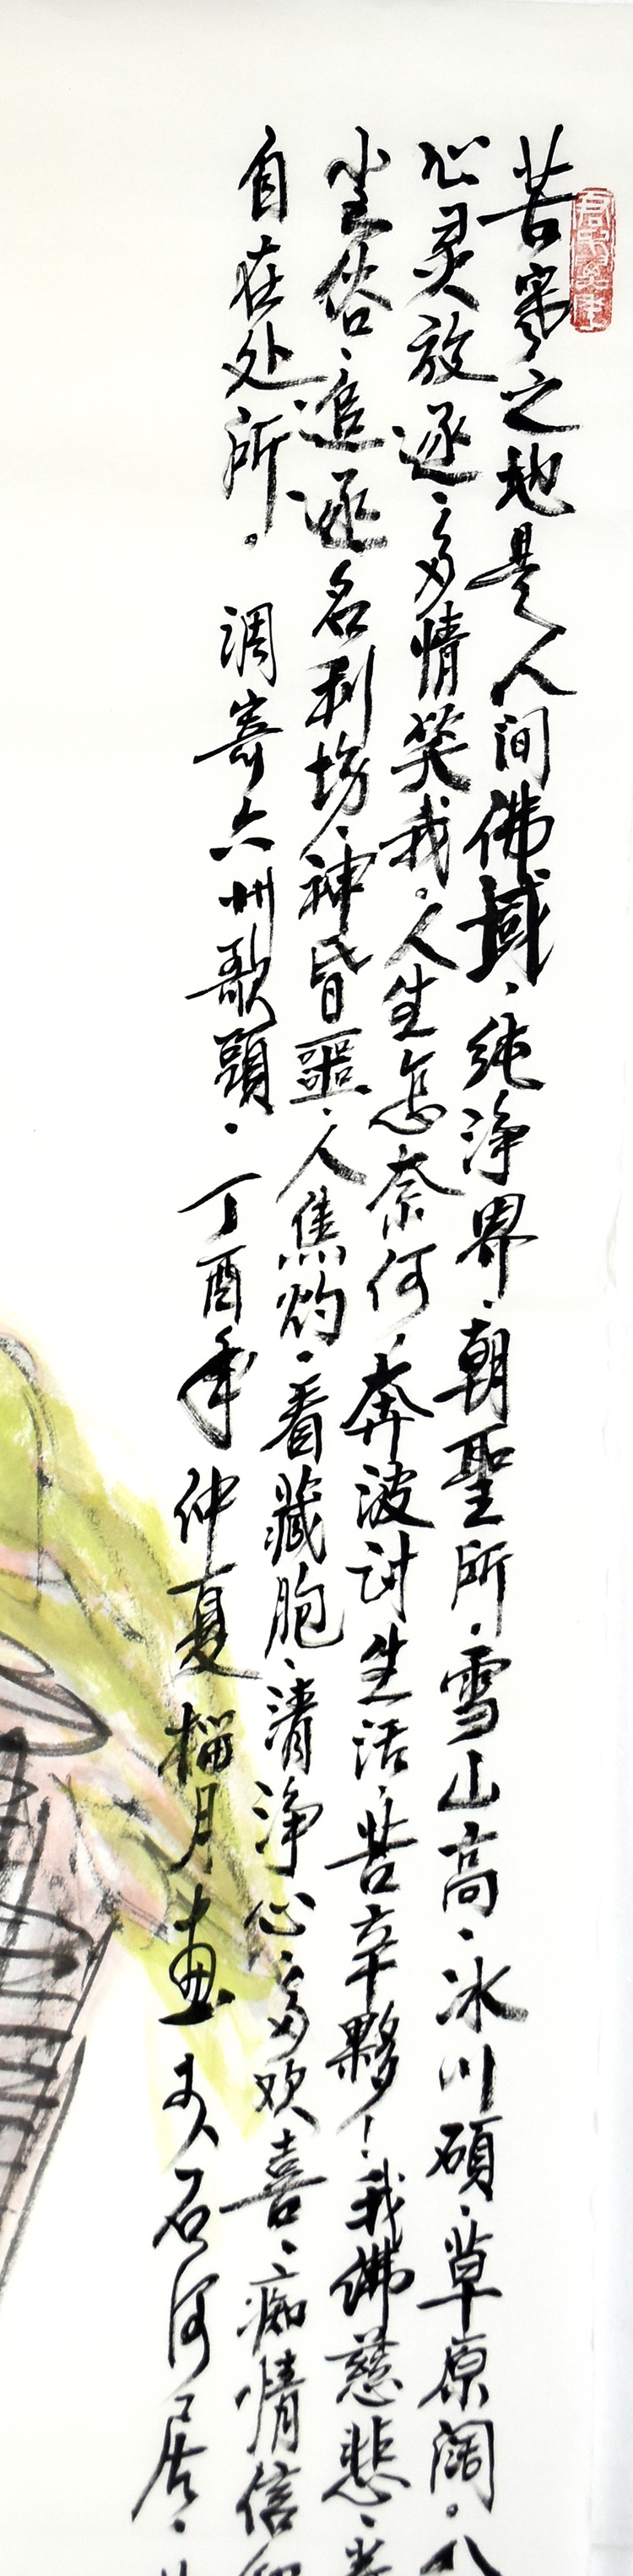 苦寒之地是人间佛域、纯净界、朝聖所、雪山高、冰川碩、草原阔。
心灵放逐、多情笑我。人生怎奈何、奔波討生活、苦辛夥！我佛慈悲、
尘俗、追逐名利场、神昏噩、人焦灼、看藏胞、清净心、多欢喜、痴情信
自在处所。調寄六州歌頭、丁酉年仲夏榴月畫於石河居、